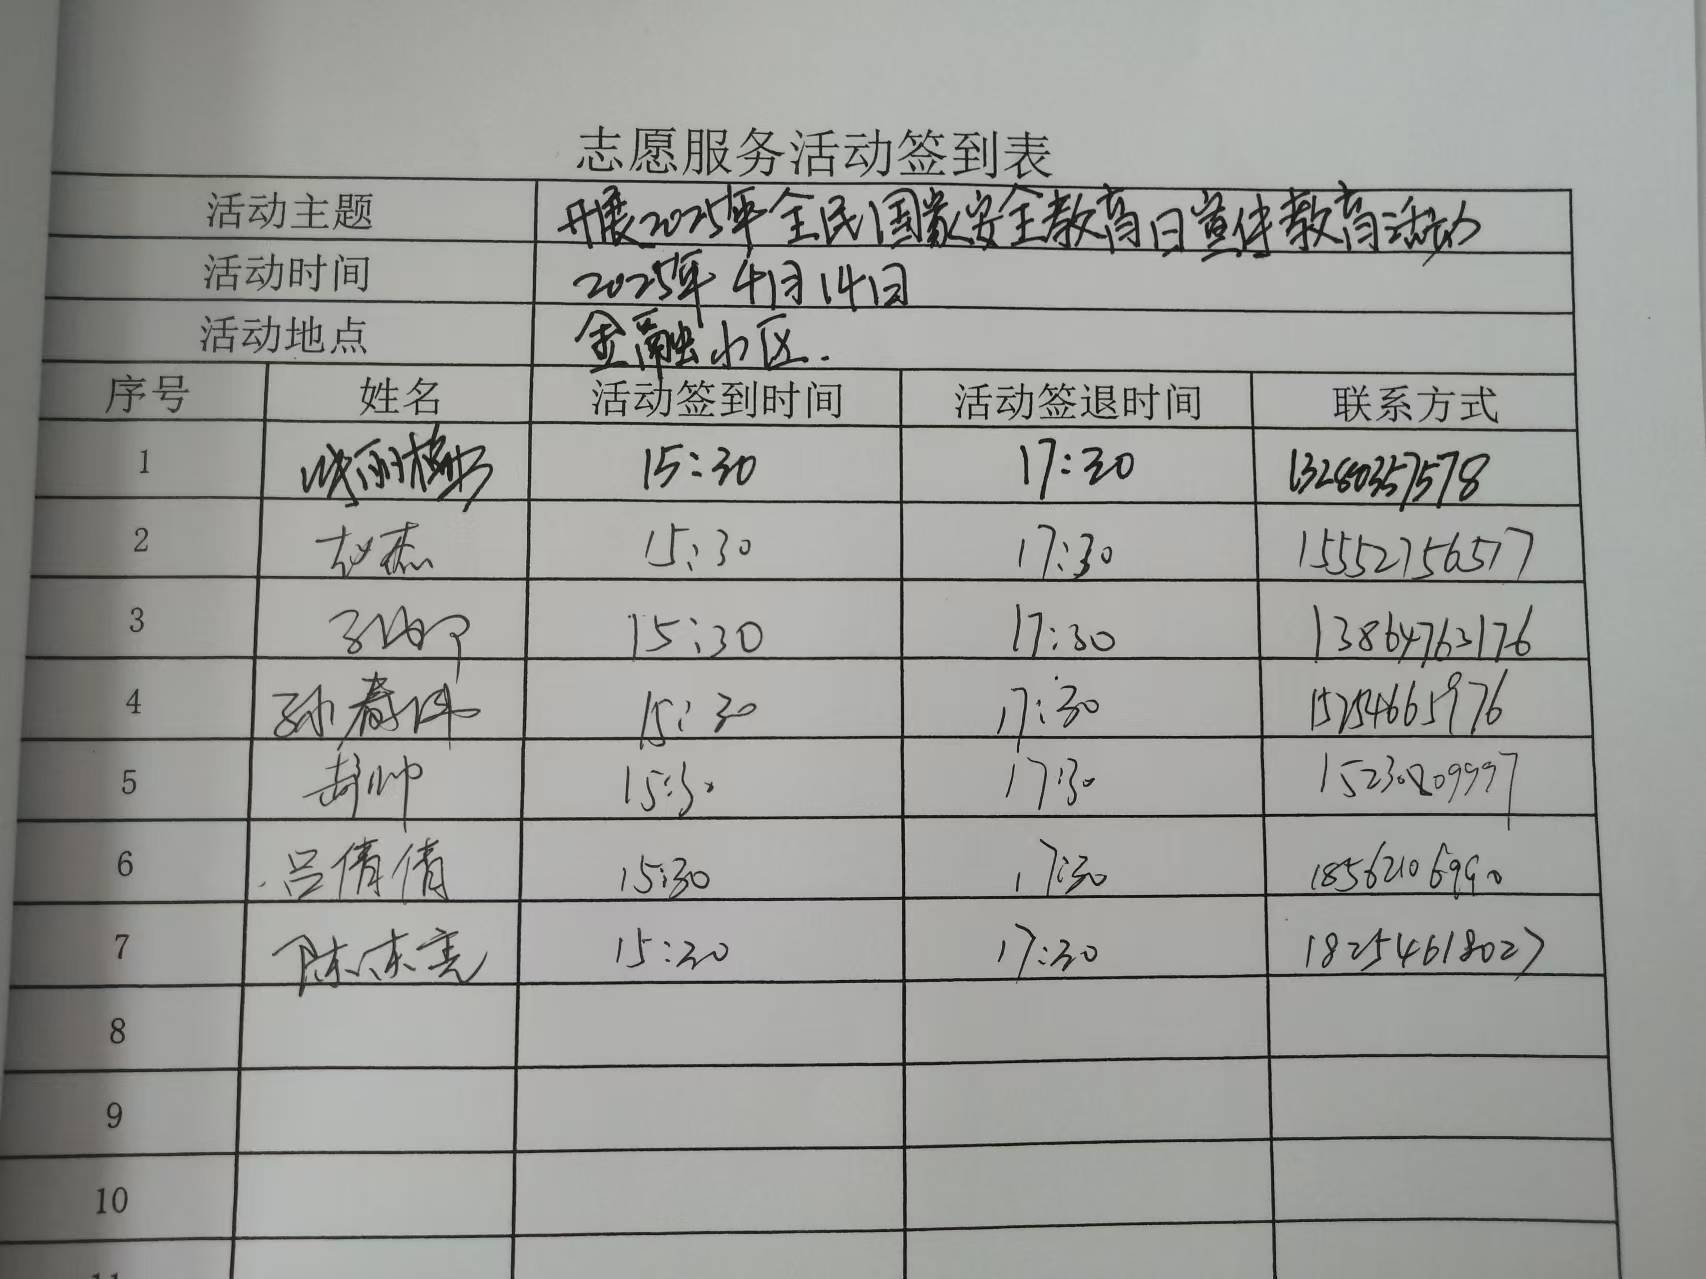 志愿服务活动签到表
活动主题 开展2025年全民国家安全教育日宣传教育活动
活动时间 2025年4月14日
活动地点 金融小区.
序号 姓名 活动签到时间 活动签退时间 联系方式
1 15:30 17:30 13280357578
2 赵杰 15:30 17:30 15552756517
3 15:30 17:30 13864763176
4 孙春伟 15:30 17:30 15254665976
5 15:30 17:30
6 吕倩倩 15:30 17:30 18562106990
7 陈东亮 15:30 17:30 18254618027
8
9
10